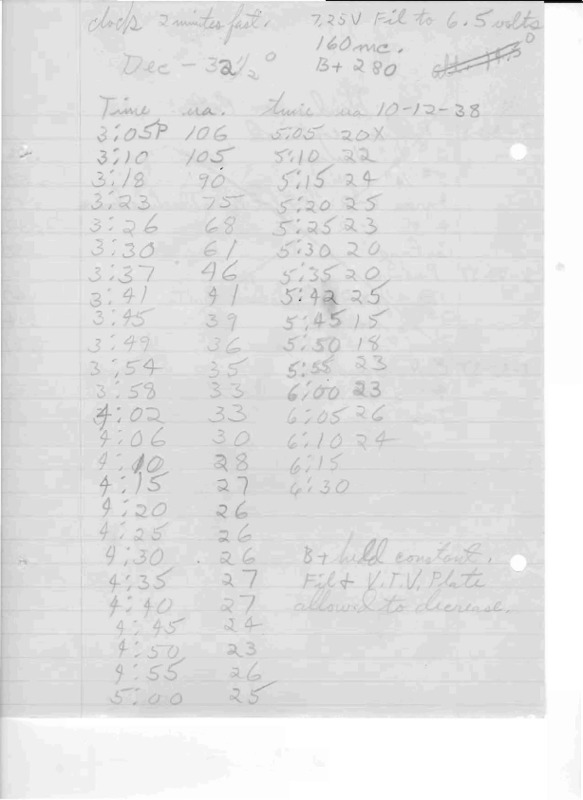 clock 2 minutes fast. 7.25V Fil to 6.5 volts
160 mc.
Dec - 32 1/2° B+ 280
Time ua. time ua 10-12-38
3:05P 106 5:05 20X
3:10 105 5:10 22
3:18 90 5:15 24
3:23 75 5:20 25
3:26 68 5:25 23
3:30 61 5:30 20
3:37 46 5:35 20
3:41 41 5:42 25
3:45 39 5:45 15
3:49 36 5:50 18
3:54 35 5:55 23
3:58 33 6:00 23
4:02 33 6:05 26
4:06 30 6:10 24
4:10 28 6:15
4:15 27 6:30
4:20 26
4:25 26
4:30 26 B+ held constant.
4:35 27 Fil & V.T.V. Plate
4:40 27 allowed to decrease.
4:45 24
4:50 23
4:55 26
5:00 25